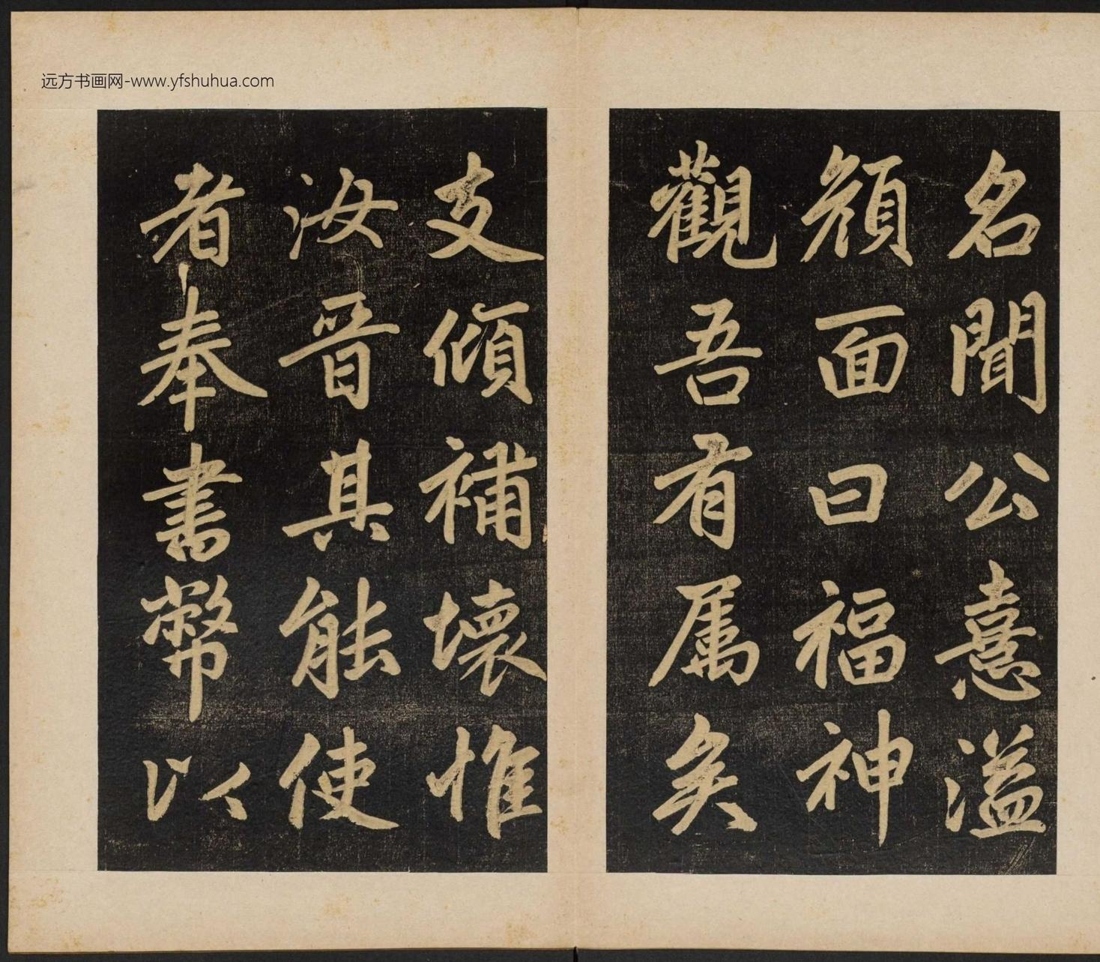 远方书画网-www.yfshuhua.com
名聞公憙溢
顔面曰福神
觀吾有属矣
支傾補壞惟
汝晉其能使
者奉書幣以